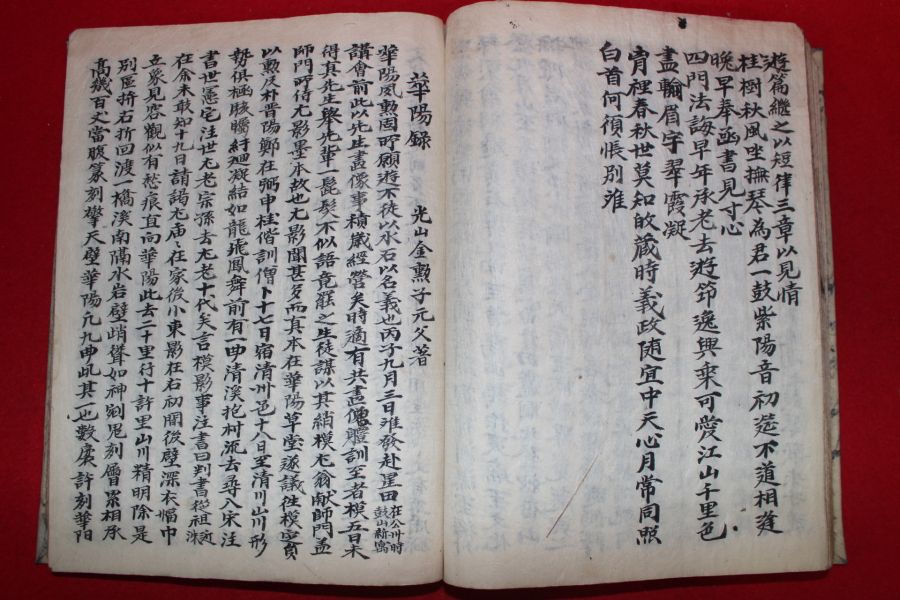 遊篇繼之以短律三章以見情
桂樹秋風坐撫琴為君一鼓紫陽音初筵不道相逢
晚早奉函書見寸心
四門法誨早年承老去遊節逸興乘可愛江山千里色
盡輸眉宇翠霞凝
胷裡春秋世莫知的藏時義政隨宜中天心月常同照
白首何須悵別離
華陽録
光山金勲子元父著
華陽夙勲固所願遊不徒以水石以名義也丙子九月三日離發赴星田在公州時鼓山新寓
講會前此以先生畫像事積歲經營矣時適有共畫僧軆訓至者模五日未
得真先生舉先輩一髭髮不似語竟罷之生徒謀以其綃模尤翁献師門盖
師門所侍尤影墨本故也尤影聞甚多而真本在華陽草堂遂議徃模實
以勲及朴晋陽鄭在弼申桂偕訓僧卜十七日宿清州邑十八日至清川山川形
勢俱極肢臅紆廻凝結如龍飛鳳舞前有一曲清溪抱村流去尋入宋注
書世憲宅注世尤老宗孫去尤老十代矣言模影事注書曰判書從祖
在余未敢知十九日請謁尤庙々在家後小東影在右初開後壁深衣幅巾
立象見客觀似有愁痕直向華陽此去二十里行十許里山川精明除是
別區折右折回渡一橋溪南隔水岩壁峭聳如神剜鬼刻層累相承
高幾百丈當腹篆刻擎天壁華陽凡九曲此其一也數庹許刻華陽